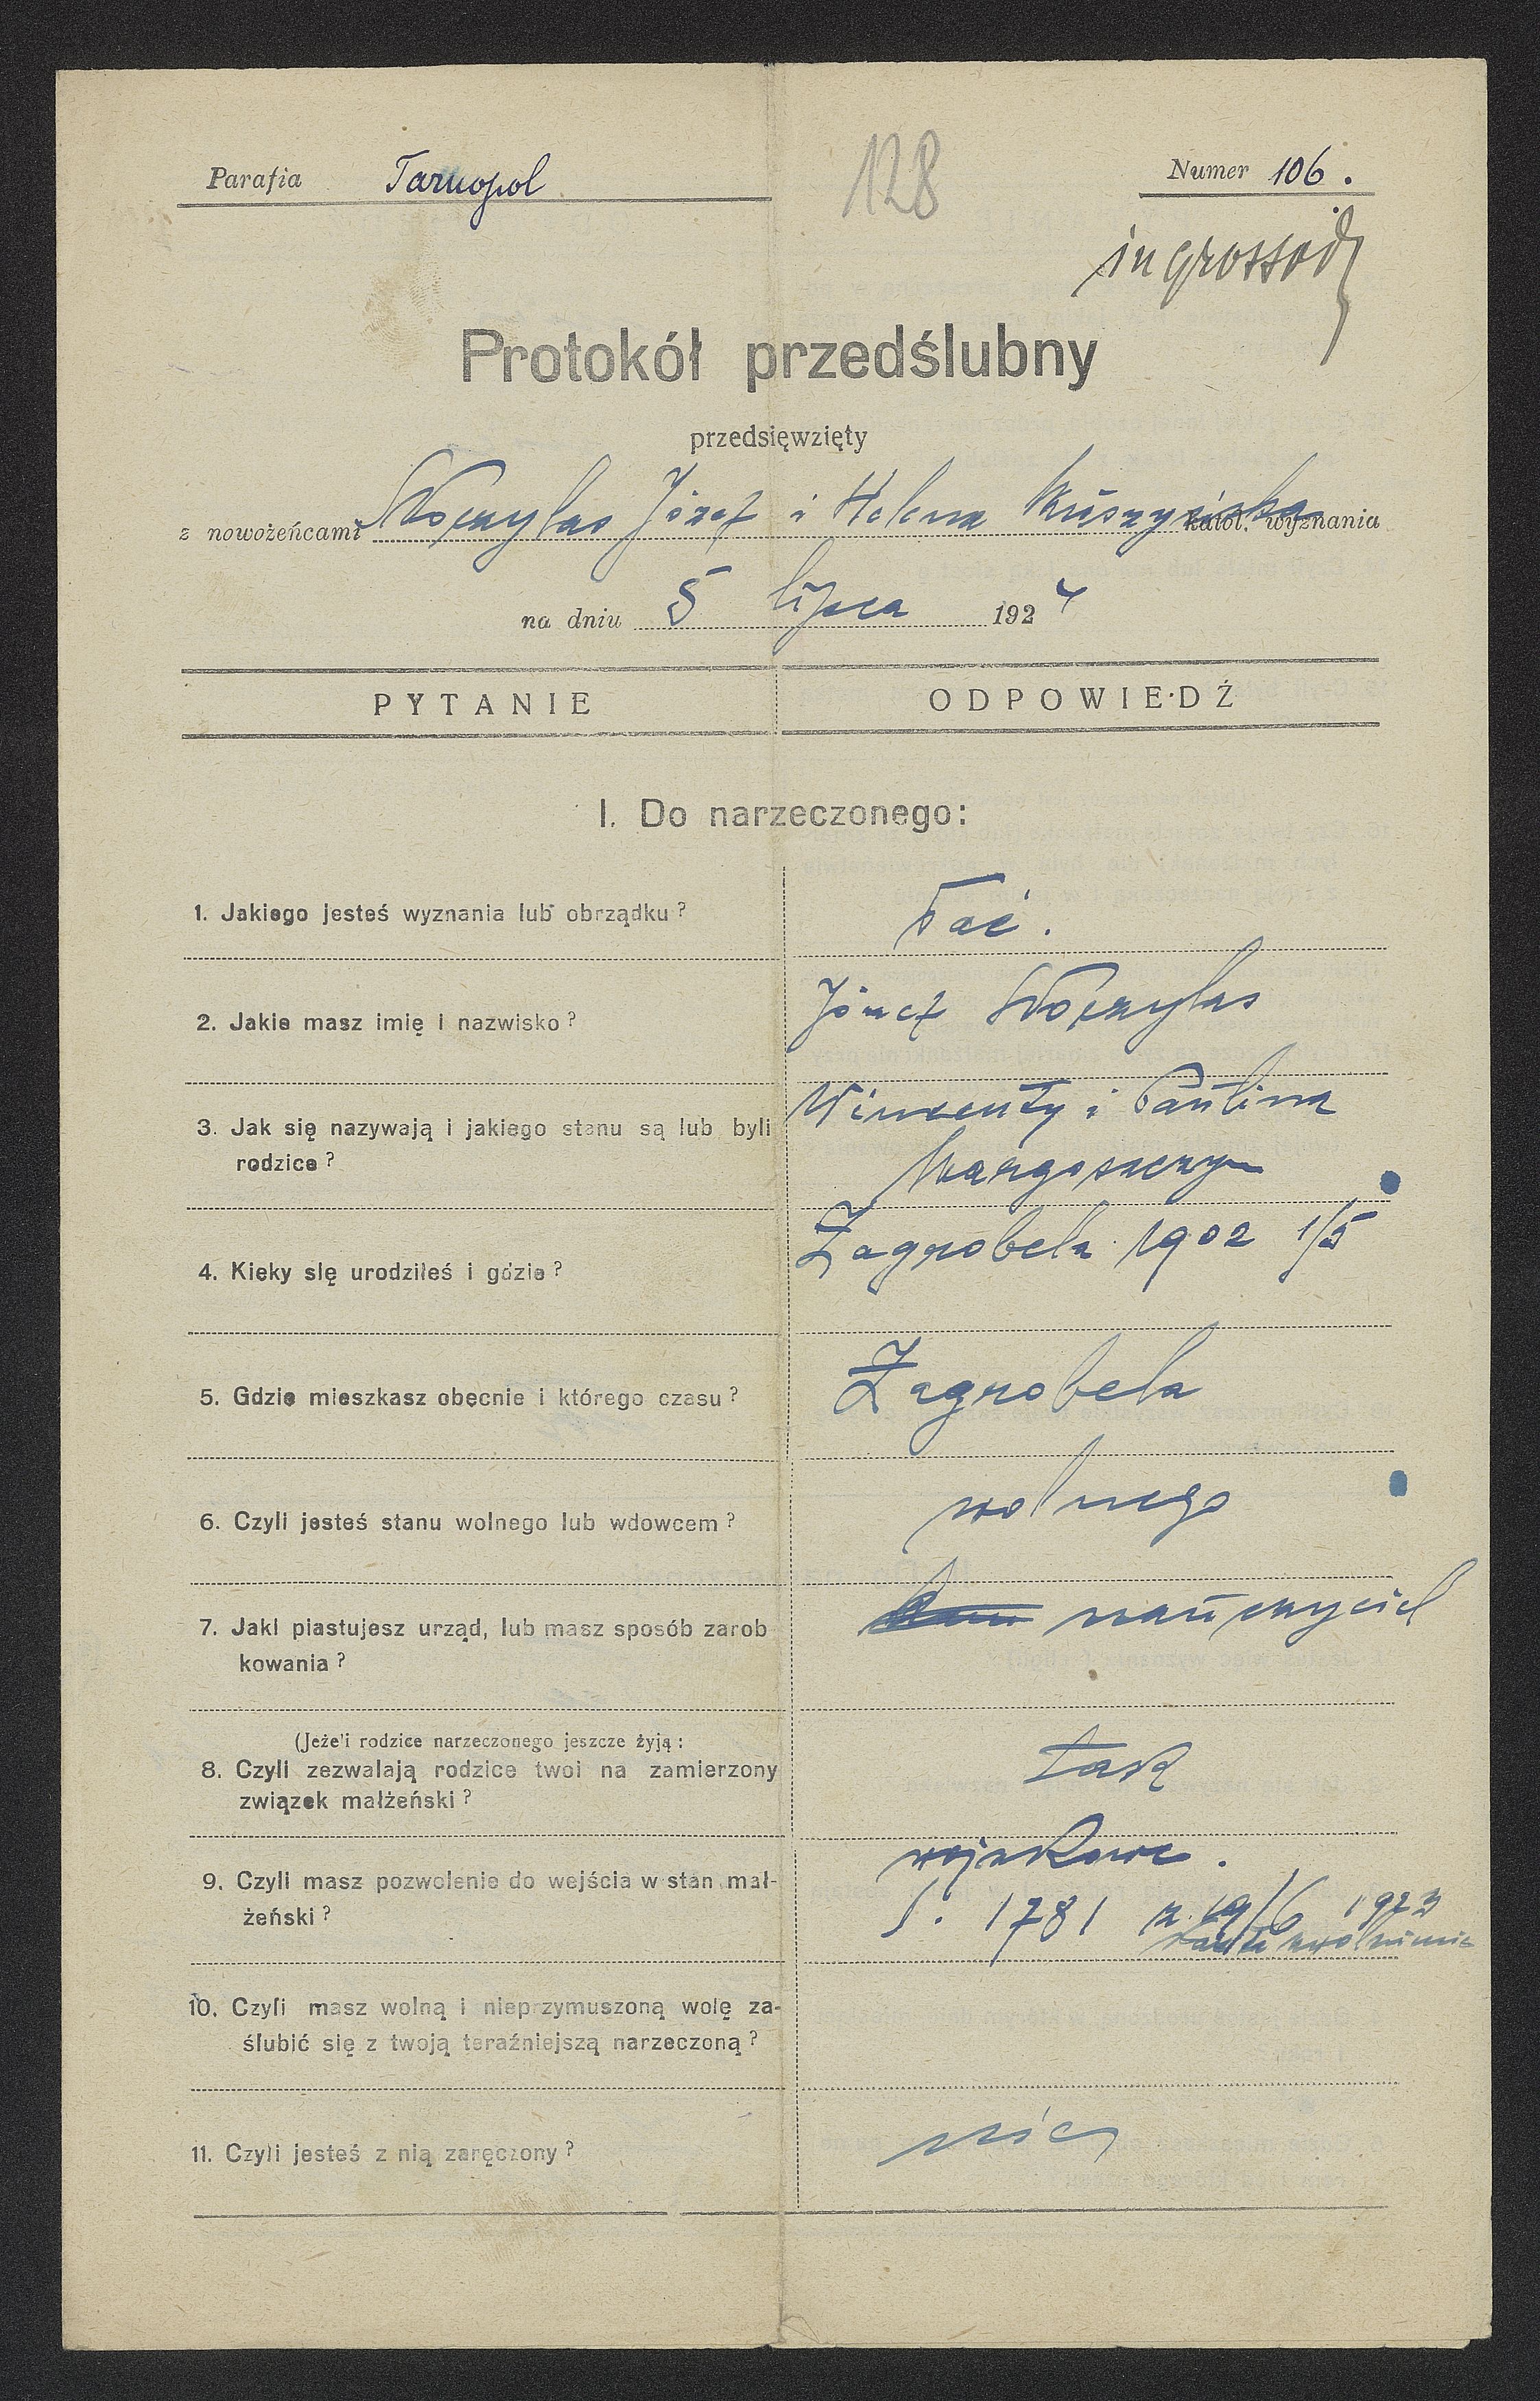 Parafia Tarnopol
128
Numer 106.
ingrossod
Protokół przedślubny
przedsięwzięty
z nowożeńcami Józef i Helena katol. wyznania
na dniu 5 lipca 1924
PYTANIE
ODPOWIEDŹ
I. Do narzeczonego:
1. Jakiego jesteś wyznania lub obrządku?
łać.
2. Jakie masz imię i nazwisko?
Józef
3. Jak się nazywają i jakiego stanu są lub byli
rodzice?
Wincenty i Paulina
4. Kieky się urodziłeś i gdzie?
Zagrobela 1902 1/5
5. Gdzie mieszkasz obecnie i którego czasu?
Zagrobela
6. Czyli jesteś stanu wolnego lub wdowcem?
wolnego
7. Jaki piastujesz urząd, lub masz sposób zarob
kowania?
nauczyciel
(Jeże'i rodzice narzeczonego jeszcze żyją:
8. Czyli zezwalają rodzice twoi na zamierzony
związek małżeński?
tak
9. Czyli masz pozwolenie do wejścia w stan mał-
żeński?
wojskowe.
1781 z 19/6 1923
10. Czyli masz wolną i nieprzymuszoną wolę za-
ślubić się z twoją teraźniejszą narzeczoną?
11. Czyli jesteś z nią zaręczony?